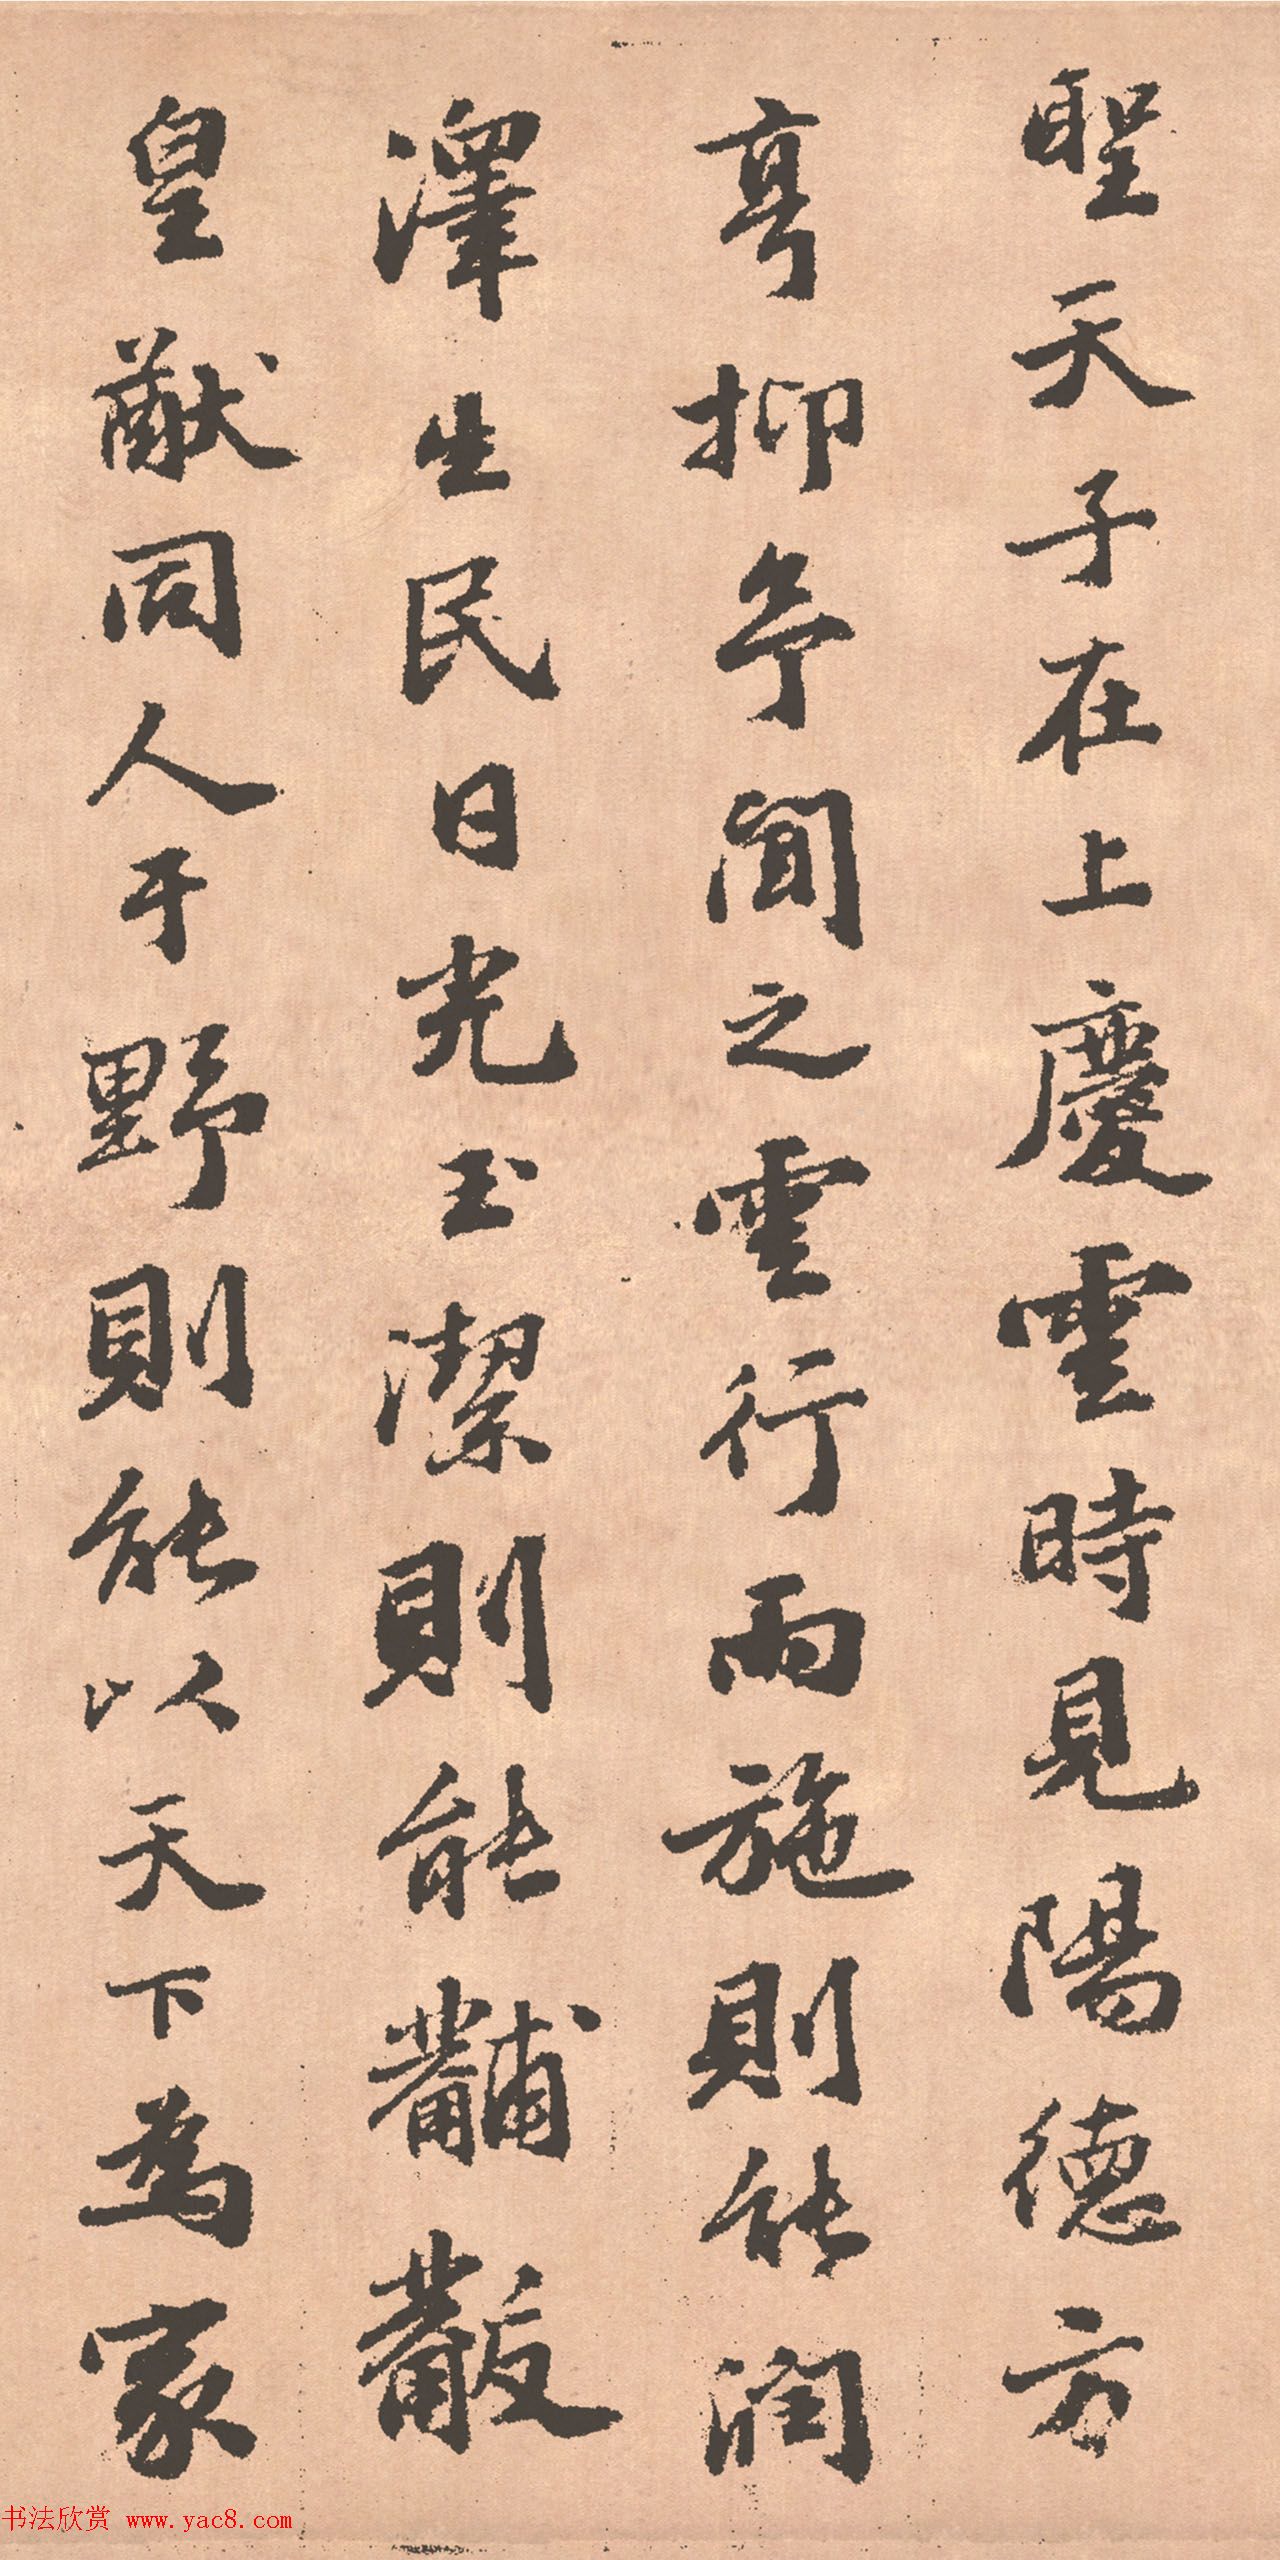 聖天子在上慶雲時見陽德方
亨抑亭閒之雲行而施則能潤
澤生民日光玉潔則能黼黻
皇猷同人于野則能以天下為家
书法欣赏 www.yac8.com